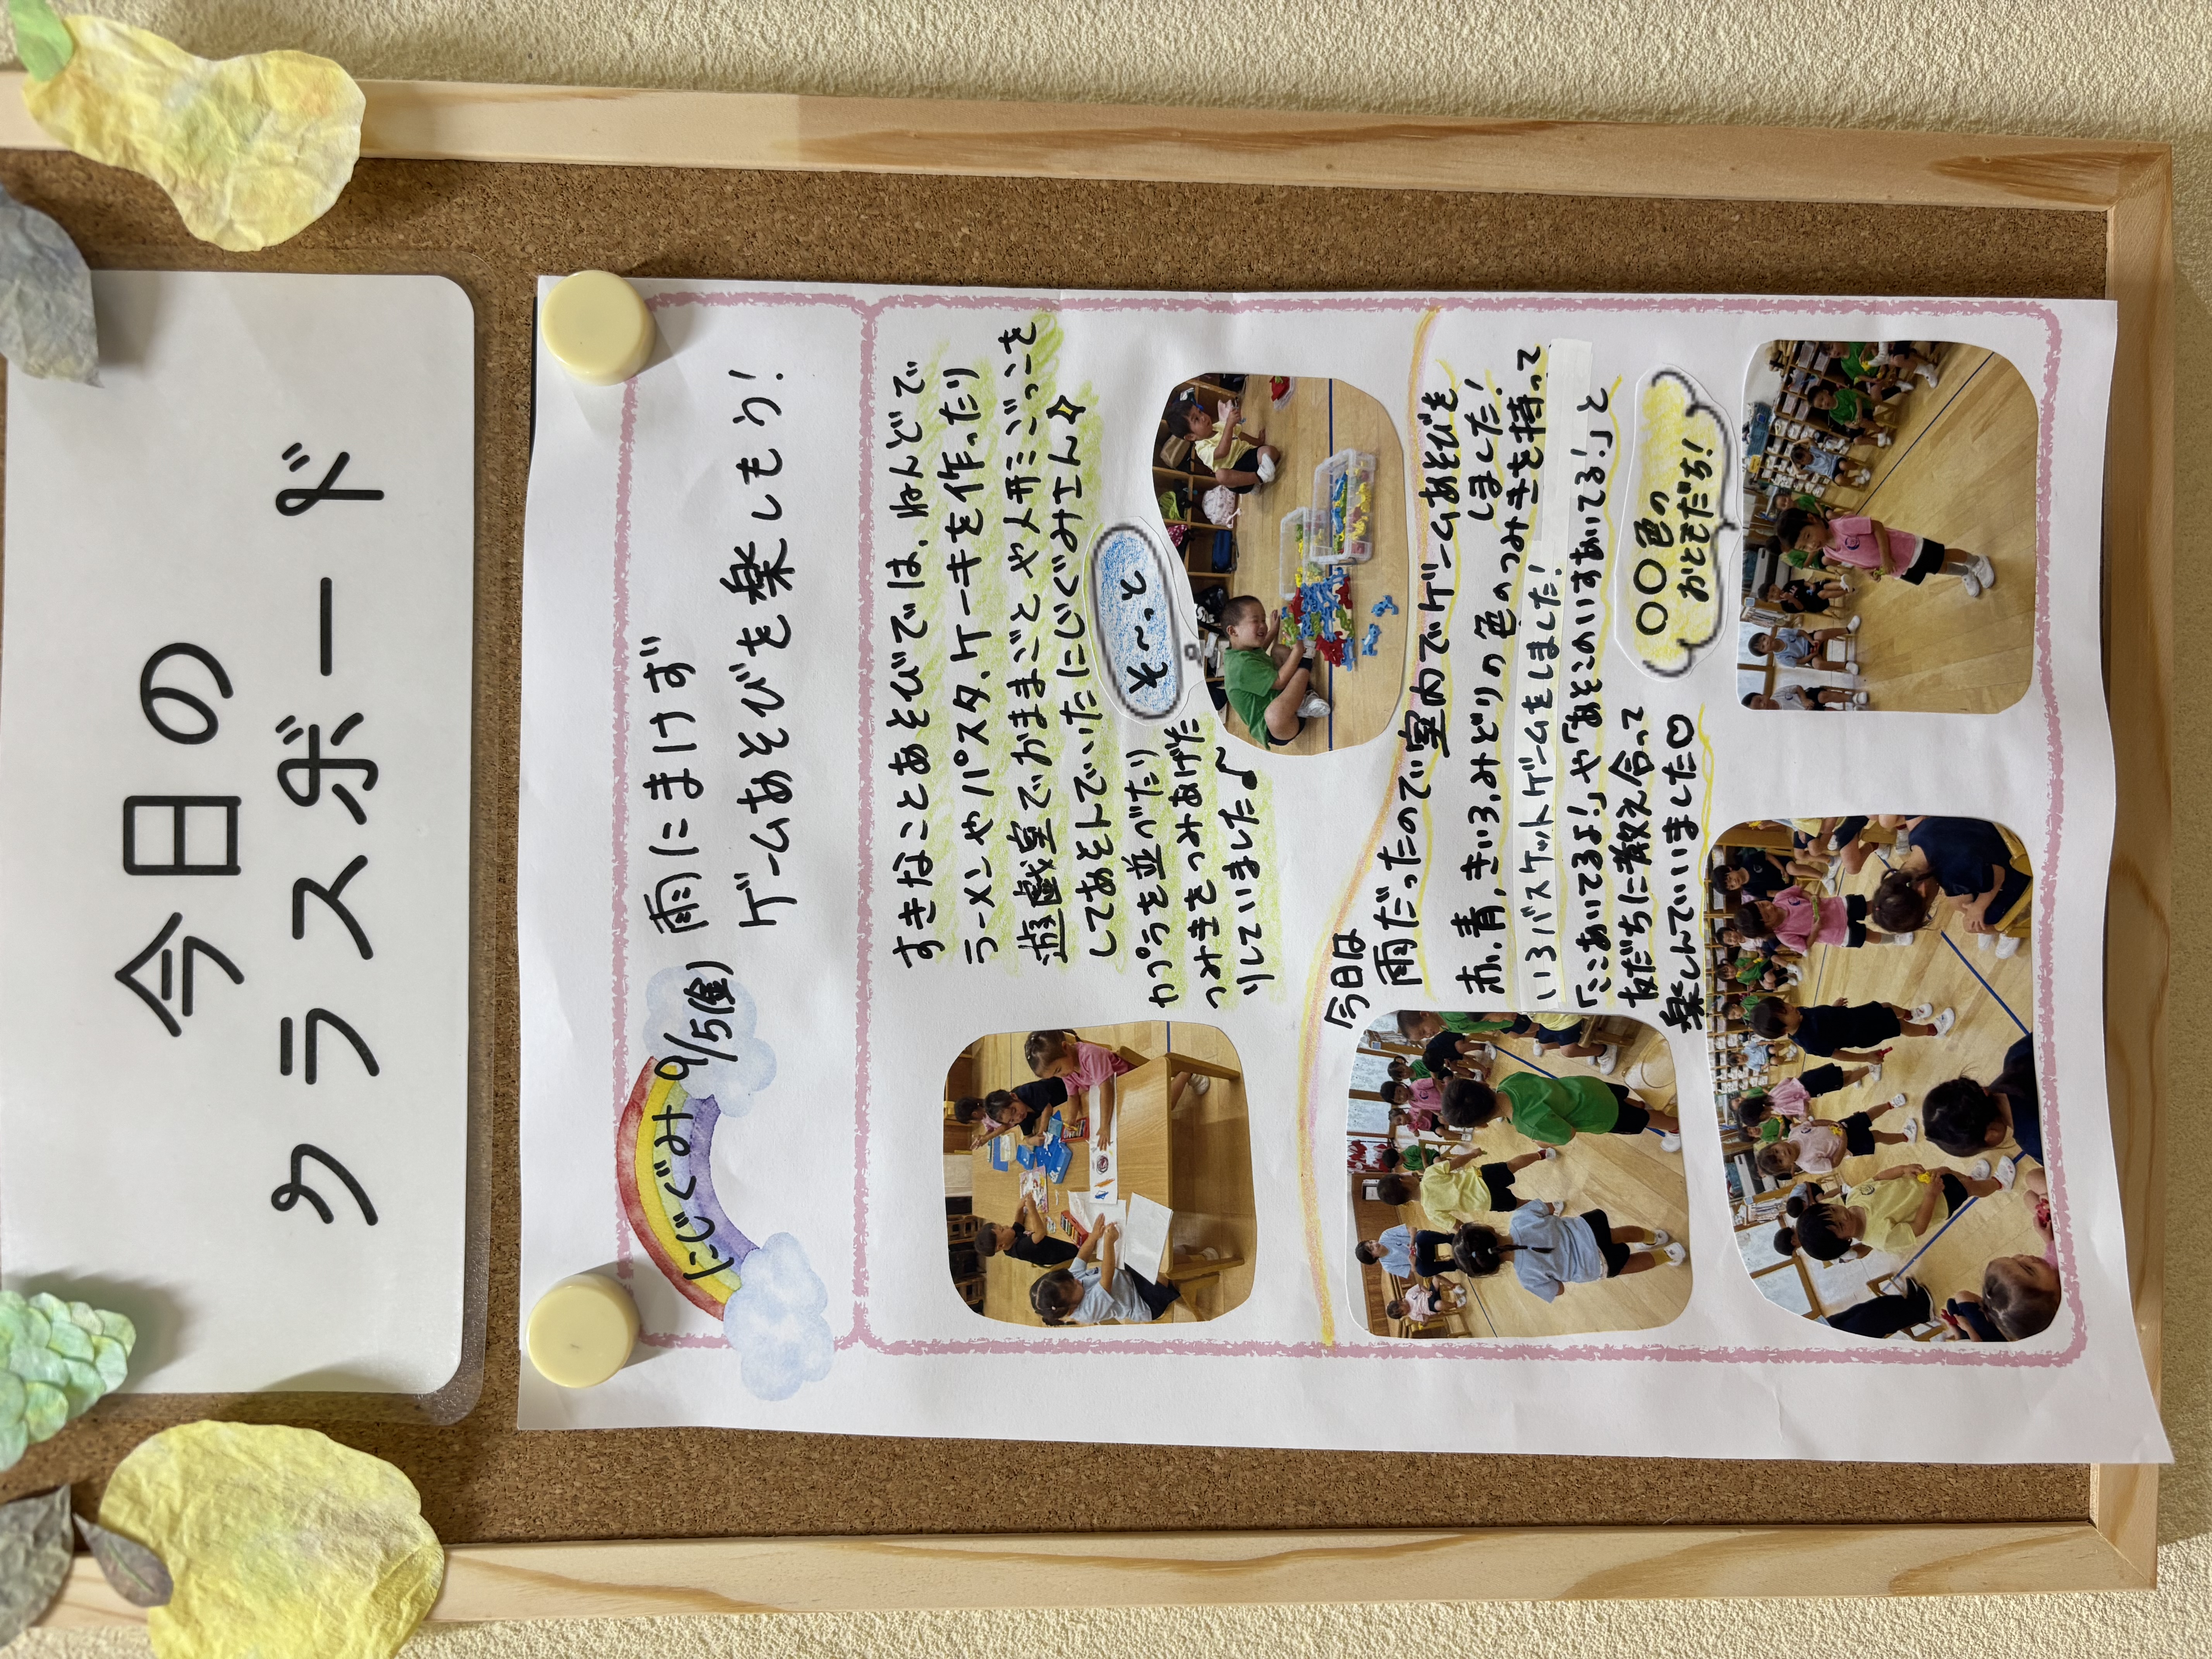 今日の
クラスボード
にじぐみ 9/5(金) 雨にまけず
ゲームあそびを楽しもう!
すきなことあそびでは、ねんどで
ラーメンやパスタ、ケーキを作ったり
遊戯室でおままごとや人形ごっこを
してあそんでいたにじぐみさん☆
カプラを並べたり
つみきをつみあげた
りしていました♪
そ〜っと
今日は
雨だったので室内でゲームあそびを
しました!
赤、青、きいろ、みどりの色のつみきを持って
いろバスケットゲームをしました!
「ここあいてるよ!」や「あそこのいすあいてる!」と
友だちに教え合って
楽しんでいいました♡
〇〇色の
おともだち!